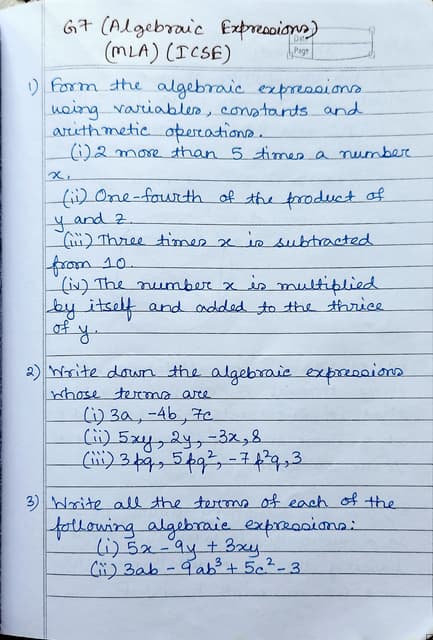 G7 (Algebraic Expressions)
(MLA) (ICSE)
Page
1) Form the algebraic expressions
using variables, constants and
arithmetic operations.
(i) 2 more than 5 times a number
x.
(ii) One-fourth of the product of
y and z.
(iii) Three times x is subtracted
from 10.
(iv) The number x is multiplied
by itself and added to the thrice
of y.
2) Write down the algebraic expressions
whose terms are
(i) 3a, -4b, 7c
(ii) 5xy, 2y, -3x, 8
(iii) 3pq, 5pq², -7p²q, 3
3) Write all the terms of each of the
following algebraic expressions:
(i) 5x - 9y + 3xy
(ii) 3ab - 9ab³ + 5c² - 3